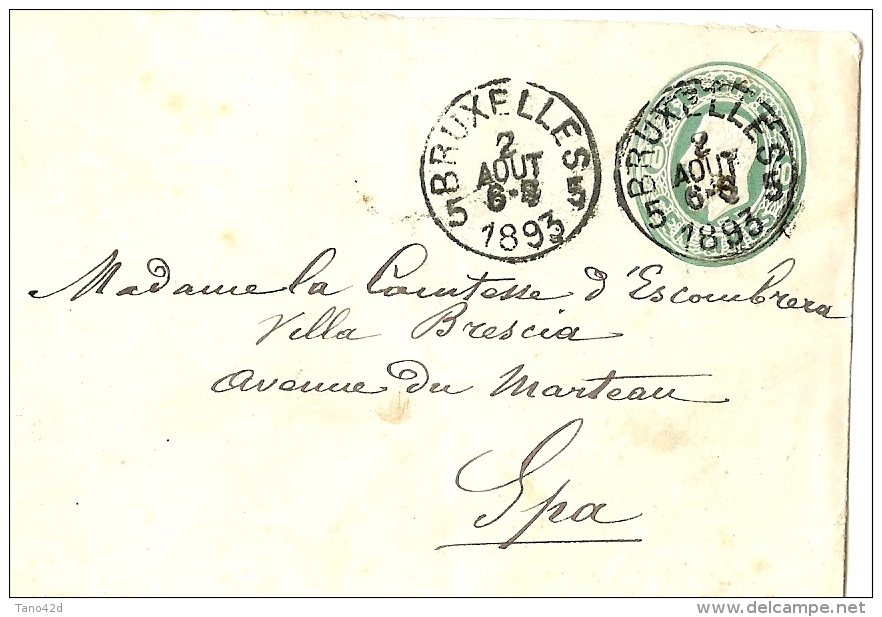 BRUXELLES
2
AOUT
6-
5 5
1893
BRUXELLES
2
AOUT
6-
5 5
1893
CENTIMES
Madame la Comtesse d'Escombrera
Villa Brescia
Avenue du Marteau
Spa
Tano42d
delcampe.net